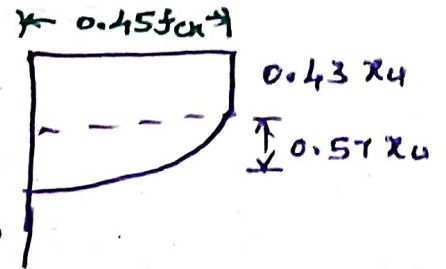 0.45fck
0.43 xu
0.57 xu